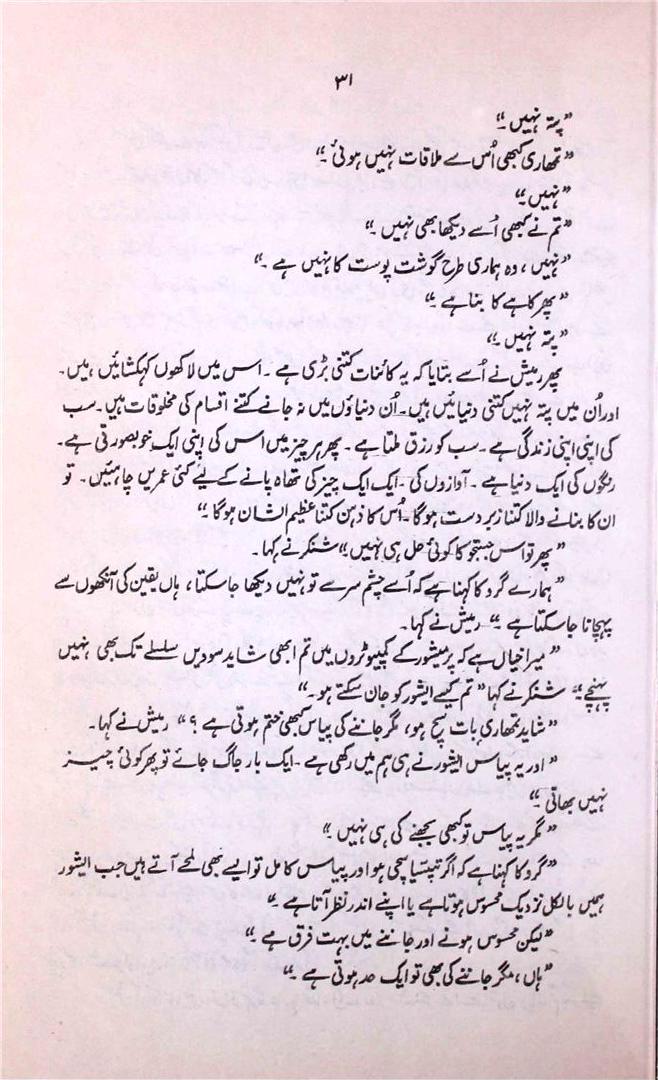 ۳۱
”پتہ نہیں۔“
”تمھاری کبھی اُس سے ملاقات نہیں ہوئی۔“
”نہیں۔“
”تم نے کبھی اُسے دیکھا بھی نہیں۔“
”نہیں، وہ ہماری طرح گوشت پوست کا نہیں ہے۔“
”پھر کاہے کا بنا ہے۔“
”پتہ نہیں۔“
پھر رمیش نے اُسے بتایا کہ یہ کائنات کتنی بڑی ہے۔ اس میں لاکھوں کہکشائیں ہیں۔
اور اُن میں پتہ نہیں کتنی دنیائیں ہیں۔ اُن دنیاؤں میں نہ جانے کتنے اقسام کی مخلوقات ہیں۔ سب
کی اپنی اپنی زندگی ہے۔ سب کو رزق ملتا ہے۔ پھر ہر چیز میں اس کی اپنی ایک خوبصورتی ہے۔
رنگوں کی ایک دنیا ہے۔ آوازوں کی۔ ایک ایک چیز کی تھاہ پانے کے لیے کئی عمریں چاہئیں۔ تو
ان کا بنانے والا کتنا زبردست ہوگا۔ اُس کا ذہن کتنا عظیم الشان ہوگا۔“
”پھر تو اس جستجو کا کوئی حل ہی نہیں“ شنکر نے کہا۔
”ہمارے گرو کا کہنا ہے کہ اُسے چشم سر سے تو نہیں دیکھا جا سکتا، ہاں یقین کی آنکھوں سے
پہچانا جا سکتا ہے۔“ رمیش نے کہا۔
”میرا خیال ہے کہ پرمیشور کے کمپیوٹروں میں تم ابھی شاید سودیں سلسلے تک بھی نہیں
پہنچے“ شنکر نے کہا ”تم کیسے ایشور کو جان سکتے ہو۔“
”شاید تمھاری بات سچ ہو، مگر جاننے کی پیاس کبھی ختم ہوتی ہے؟“ رمیش نے کہا۔
”اور یہ پیاس ایشور نے ہی ہم میں رکھی ہے۔ ایک بار جاگ جائے تو پھر کوئی چیز
نہیں بھاتی۔“
”مگر یہ پیاس تو کبھی بجھنے کی ہی نہیں۔“
”گرو کا کہنا ہے کہ اگر تپسیا سچی ہو اور پیاس کامل تو ایسے بھی لمحے آتے ہیں جب ایشور
ہمیں بالکل نزدیک محسوس ہوتا ہے یا اپنے اندر نظر آتا ہے۔“
”لیکن محسوس ہونے اور جاننے میں بہت فرق ہے۔“
”ہاں، مگر جاننے کی بھی تو ایک حد ہوتی ہے۔“